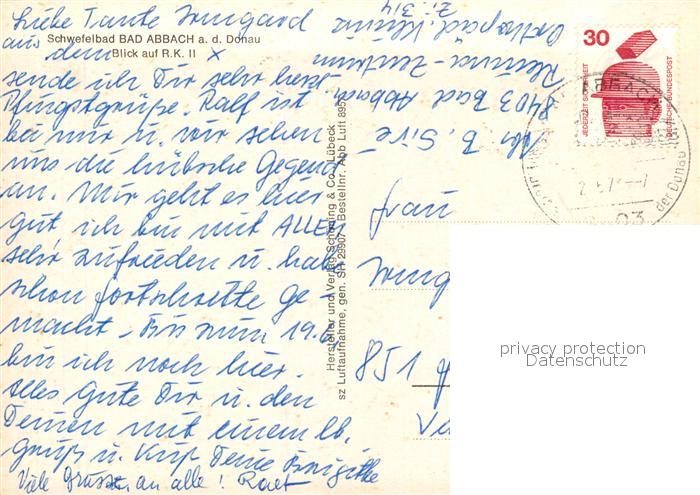 Liebe Tante Irmgard
Schwefelbad BAD ABBACH a. d. Donau
aus dem Blick auf R.K. II x
sende ich Dir sehr herzl.
Pfingstgrüße. Ralf ist
bei mir u. wir sehen
uns die hübsche Gegend
an. Mir geht es hier
gut ich bin mit ALLEM
sehr zufrieden u. habe
schon Fortschritte ge-
macht. Bis zum 19.6.
bin ich noch hier.
Alles Gute Dir u. den
Deinen mit einem lb.
Gruß u. Kuß Deine Brigitte
Viele Grüsse an alle! Ralf
Hersteller und Verlag Schöning & Co., Lübeck
sz Luftaufnahme, gen. SH 29907 Bestellnr. Abb Luft 895
Abs. B.
8403 Bad Abbach
Rheuma-Zentrum
Orthopäd. Klinik
Zi. 314
30
JEDERZEIT SICHERHEIT
DEUTSCHE BUNDESPOST
ABBACH
der Donau
Frau
Irmg
851
privacy protection
Datenschutz